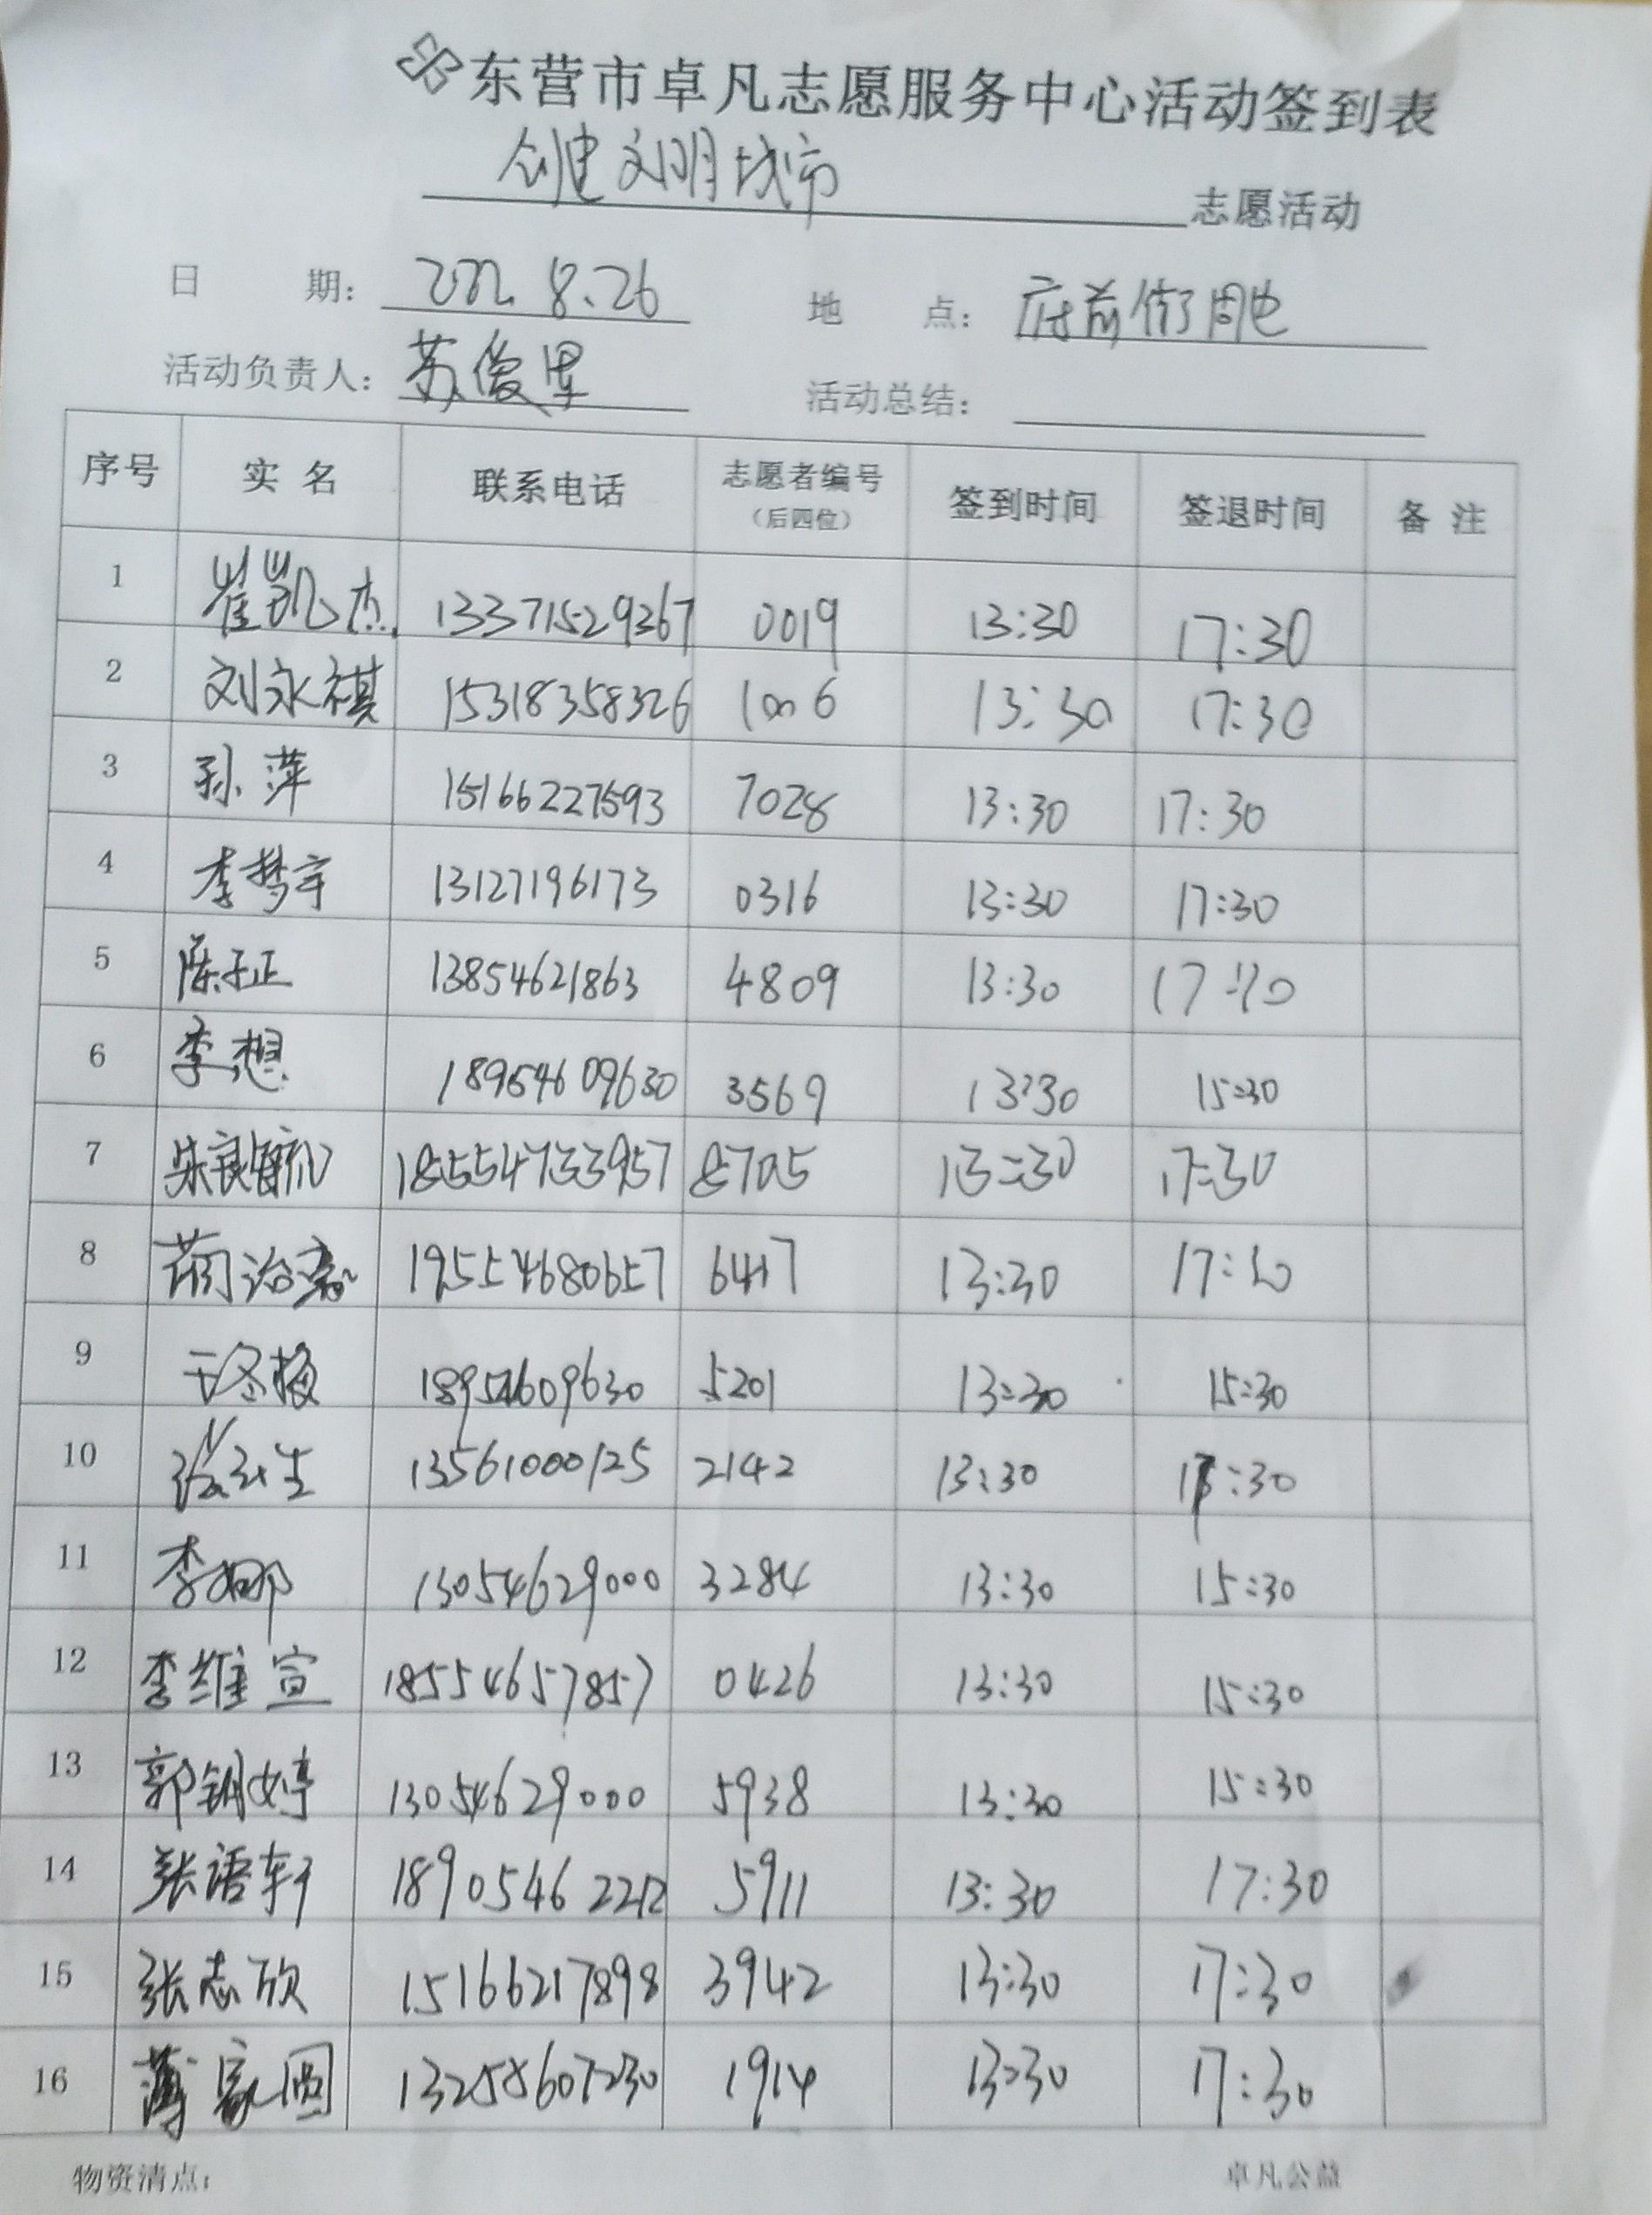 东营市卓凡志愿服务中心活动签到表
创建文明城市 志愿活动
日 期: 2022.8.26 地 点: 府前街周边
活动负责人: 苏俊 活动总结:
序号 实名 联系电话 志愿者编号(后四位) 签到时间 签退时间 备注
1 崔凯杰 13371529367 0019 13:30 17:30
2 刘永祺 15318358326 1006 13:30 17:30
3 孙萍 15166227593 7028 13:30 17:30
4 李梦宇 13127196173 0316 13:30 17:30
5 陈子正 13854621863 4809 13:30 17:30
6 李想 18954609630 3569 13:30 15:30
7 朱良 18554733957 8705 13:30 17:30
8 蔺治嘉 19554680657 6417 13:30 17:30
9 于冬梅 18954609630 5201 13:30 15:30
10 生 13561000125 2142 13:30 :30
11 李娜 13054629000 3284 13:30 15:30
12 李维宣 18554657857 0426 13:30 15:30
13 郭钥婷 13054629000 5938 13:30 15:30
14 张语轩 18905462212 5911 13:30 17:30
15 张志欣 15166217898 3942 13:30 17:30
16 薄家圆 13258607230 1914 13:30 17:30
物资清点: 卓凡公益